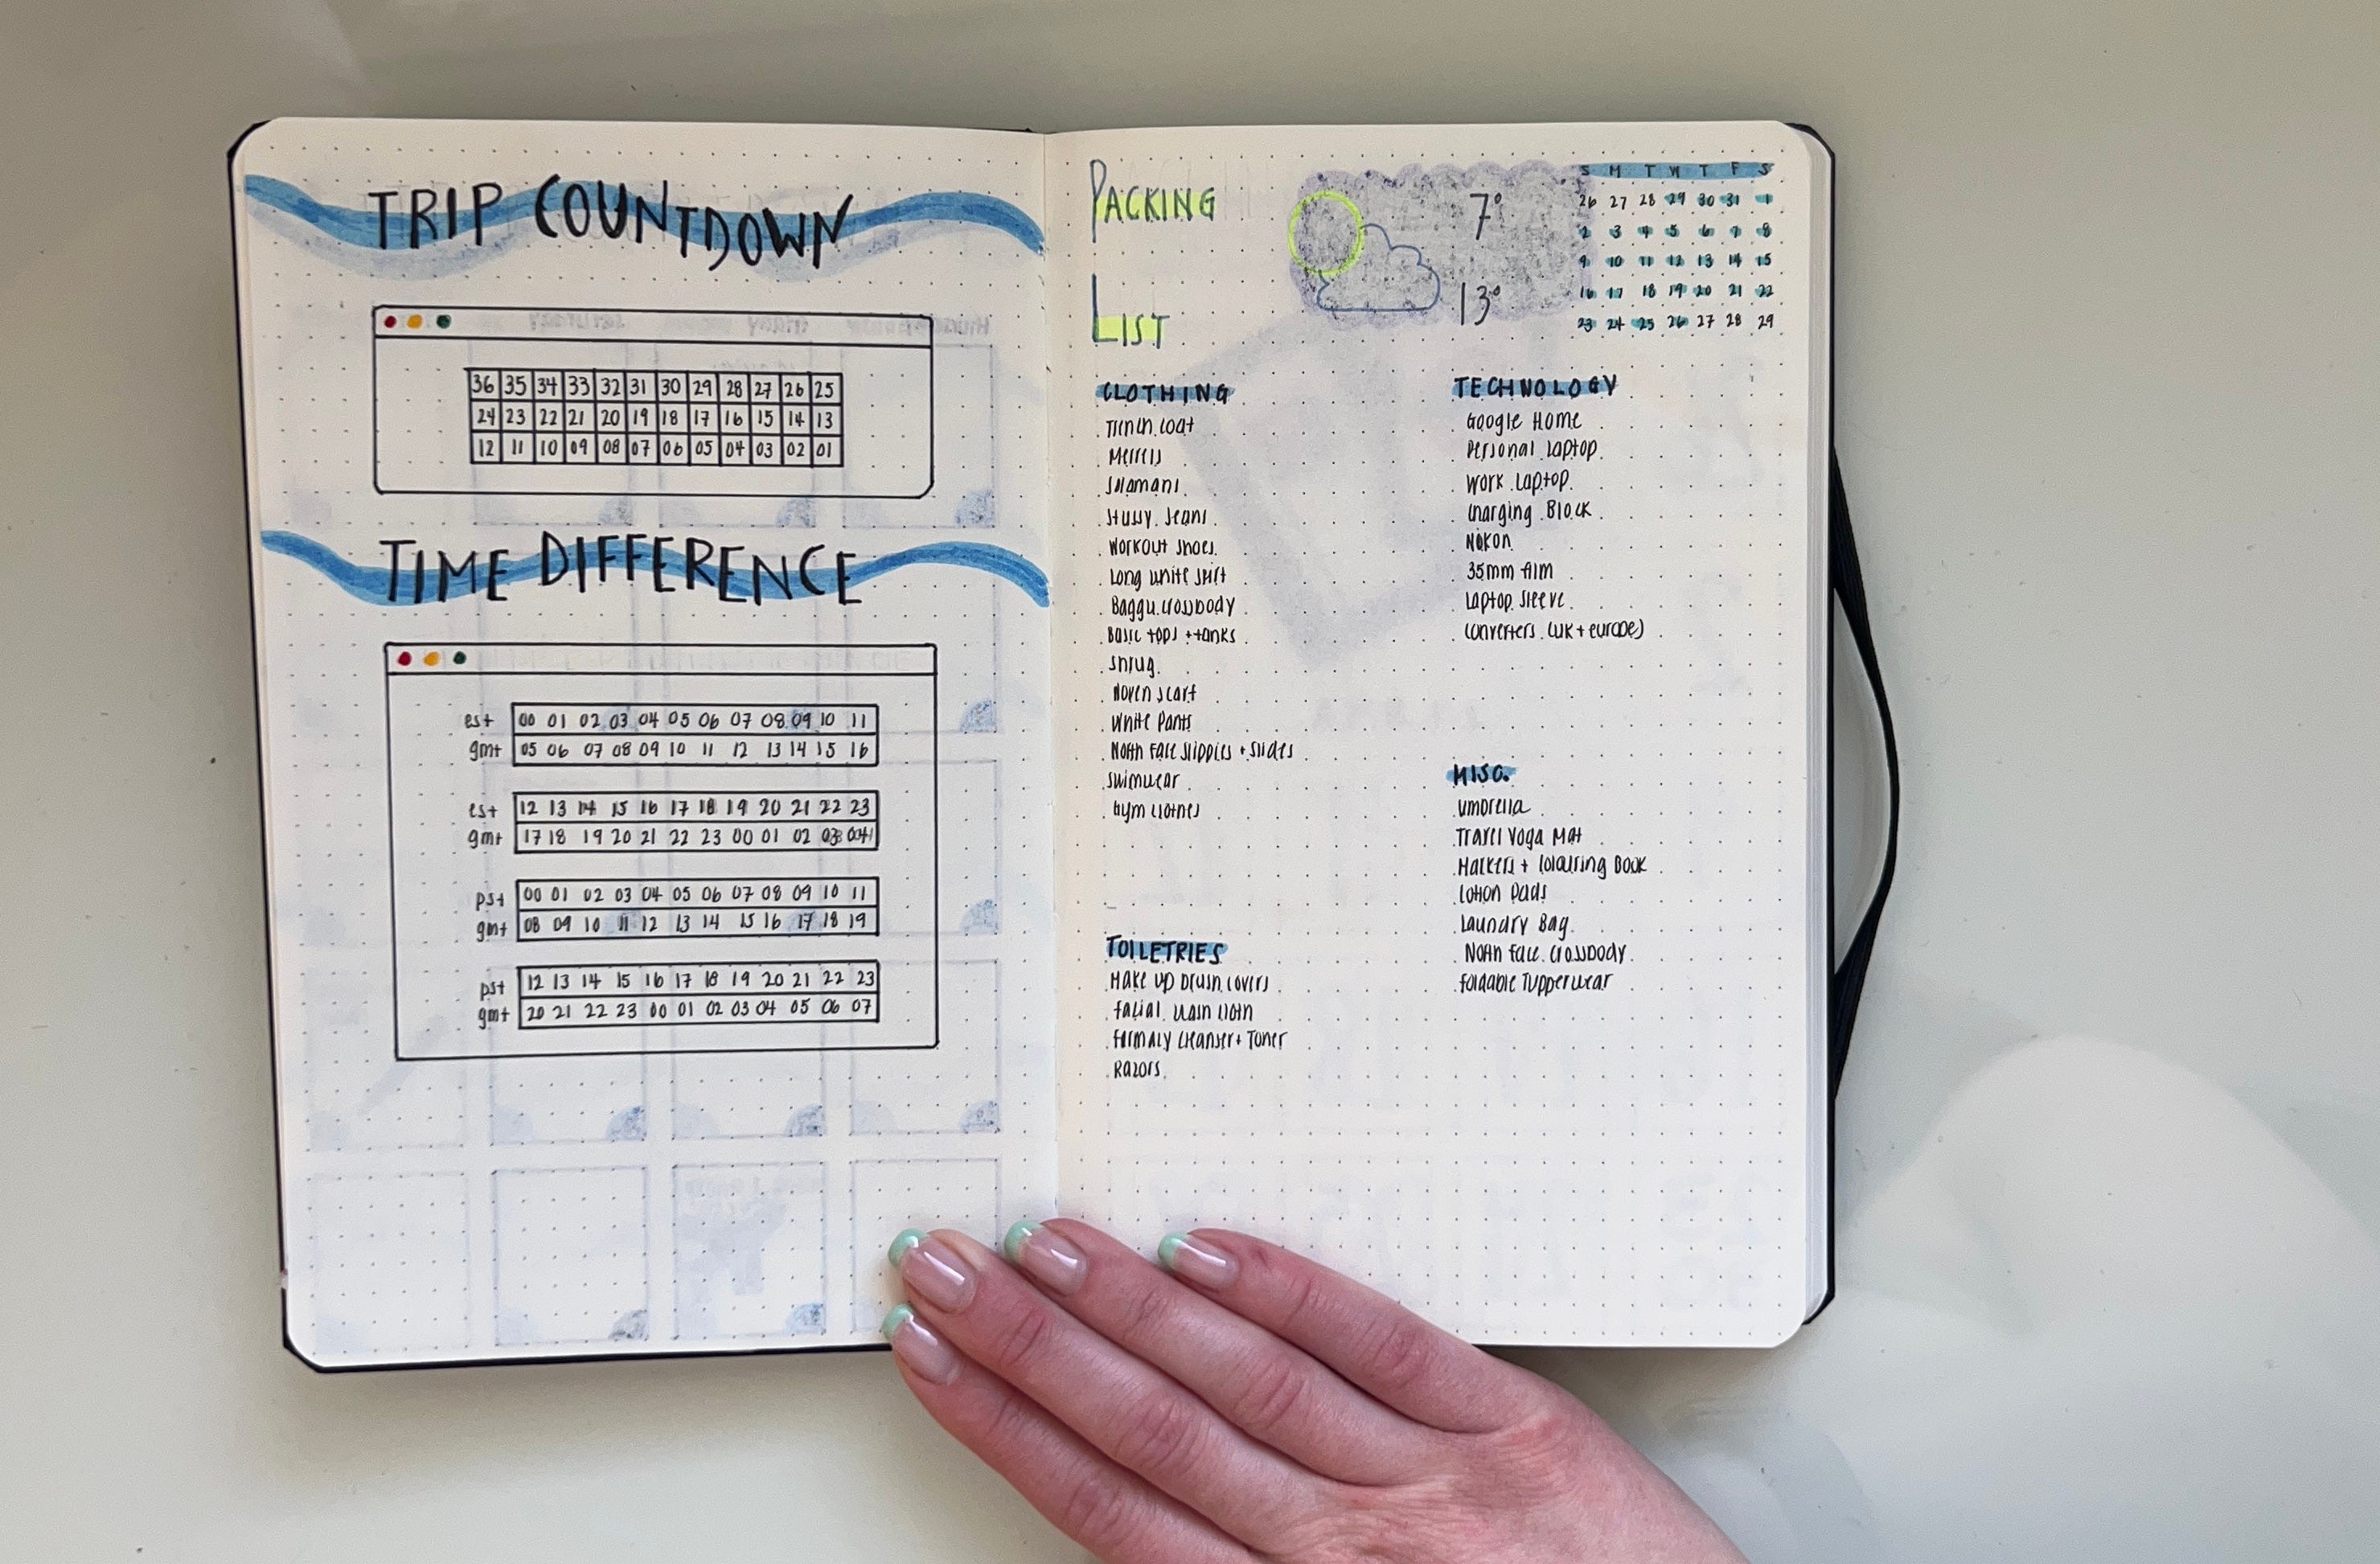 TRIP COUNTDOWN
36 35 34 33 32 31 30 29 28 27 26 25
24 23 22 21 20 19 18 17 16 15 14 13
12 11 10 09 08 07 06 05 04 03 02 01
TIME DIFFERENCE
est 00 01 02 03 04 05 06 07 08 09 10 11
gmt 05 06 07 08 09 10 11 12 13 14 15 16
est 12 13 14 15 16 17 18 19 20 21 22 23
gmt 17 18 19 20 21 22 23 00 01 02 03 04
pst 00 01 02 03 04 05 06 07 08 09 10 11
gmt 08 09 10 11 12 13 14 15 16 17 18 19
pst 12 13 14 15 16 17 18 19 20 21 22 23
gmt 20 21 22 23 00 01 02 03 04 05 06 07
PACKING
LIST
7°
13°
S M T W T F S
26 27 28 29 30 31 1
2 3 4 5 6 7 8
9 10 11 12 13 14 15
16 17 18 19 20 21 22
23 24 25 26 27 28 29
CLOTHING
Trench Coat
Merrels
Stussy Jeans
Workout Shoes
Long White Skirt
Baggu Crossbody
Basic Tops + Tanks
Shrug
Woven Scarf
White Pants
North Face Slippies + Slides
Swimwear
Gym Clothes
TOILETRIES
Make Up Brush Covers
Facial Wash Cloth
Farmacy Cleanser + Toner
Razors
TECHNOLOGY
Google Home
Personal Laptop
Work Laptop
Charging Block
Nikon
35mm film
Laptop Sleeve
Converters (UK + Europe)
MISC.
Umbrella
Travel Yoga Mat
Markers + Colouring Book
Lotion Pads
Laundry Bag
North Face Crossbody
Foldable Tupperwear